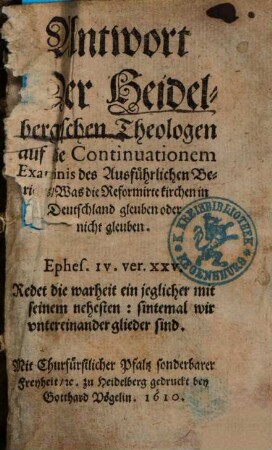 Antwort
Der Heidel-
bergischen Theologen
auf die Continuationem
Examinis des Ausführlichen Be-
richts/Was die Reformirte kirchen in
Deutschland gleuben oder
nicht gleuben.
Ephes. IV. ver. XXV.
Redet die warheit ein jeglicher mit
seinem nehesten: sintemal wir
vntereinander glieder sind.
Mit Churfürstlicher Pfaltz sonderbarer
Freyheit/ꝛc. zu Heidelberg gedruckt bey
Gotthard Vögelin. 1610.
K. KREISBIBLIOTHEK
REGENSBURG